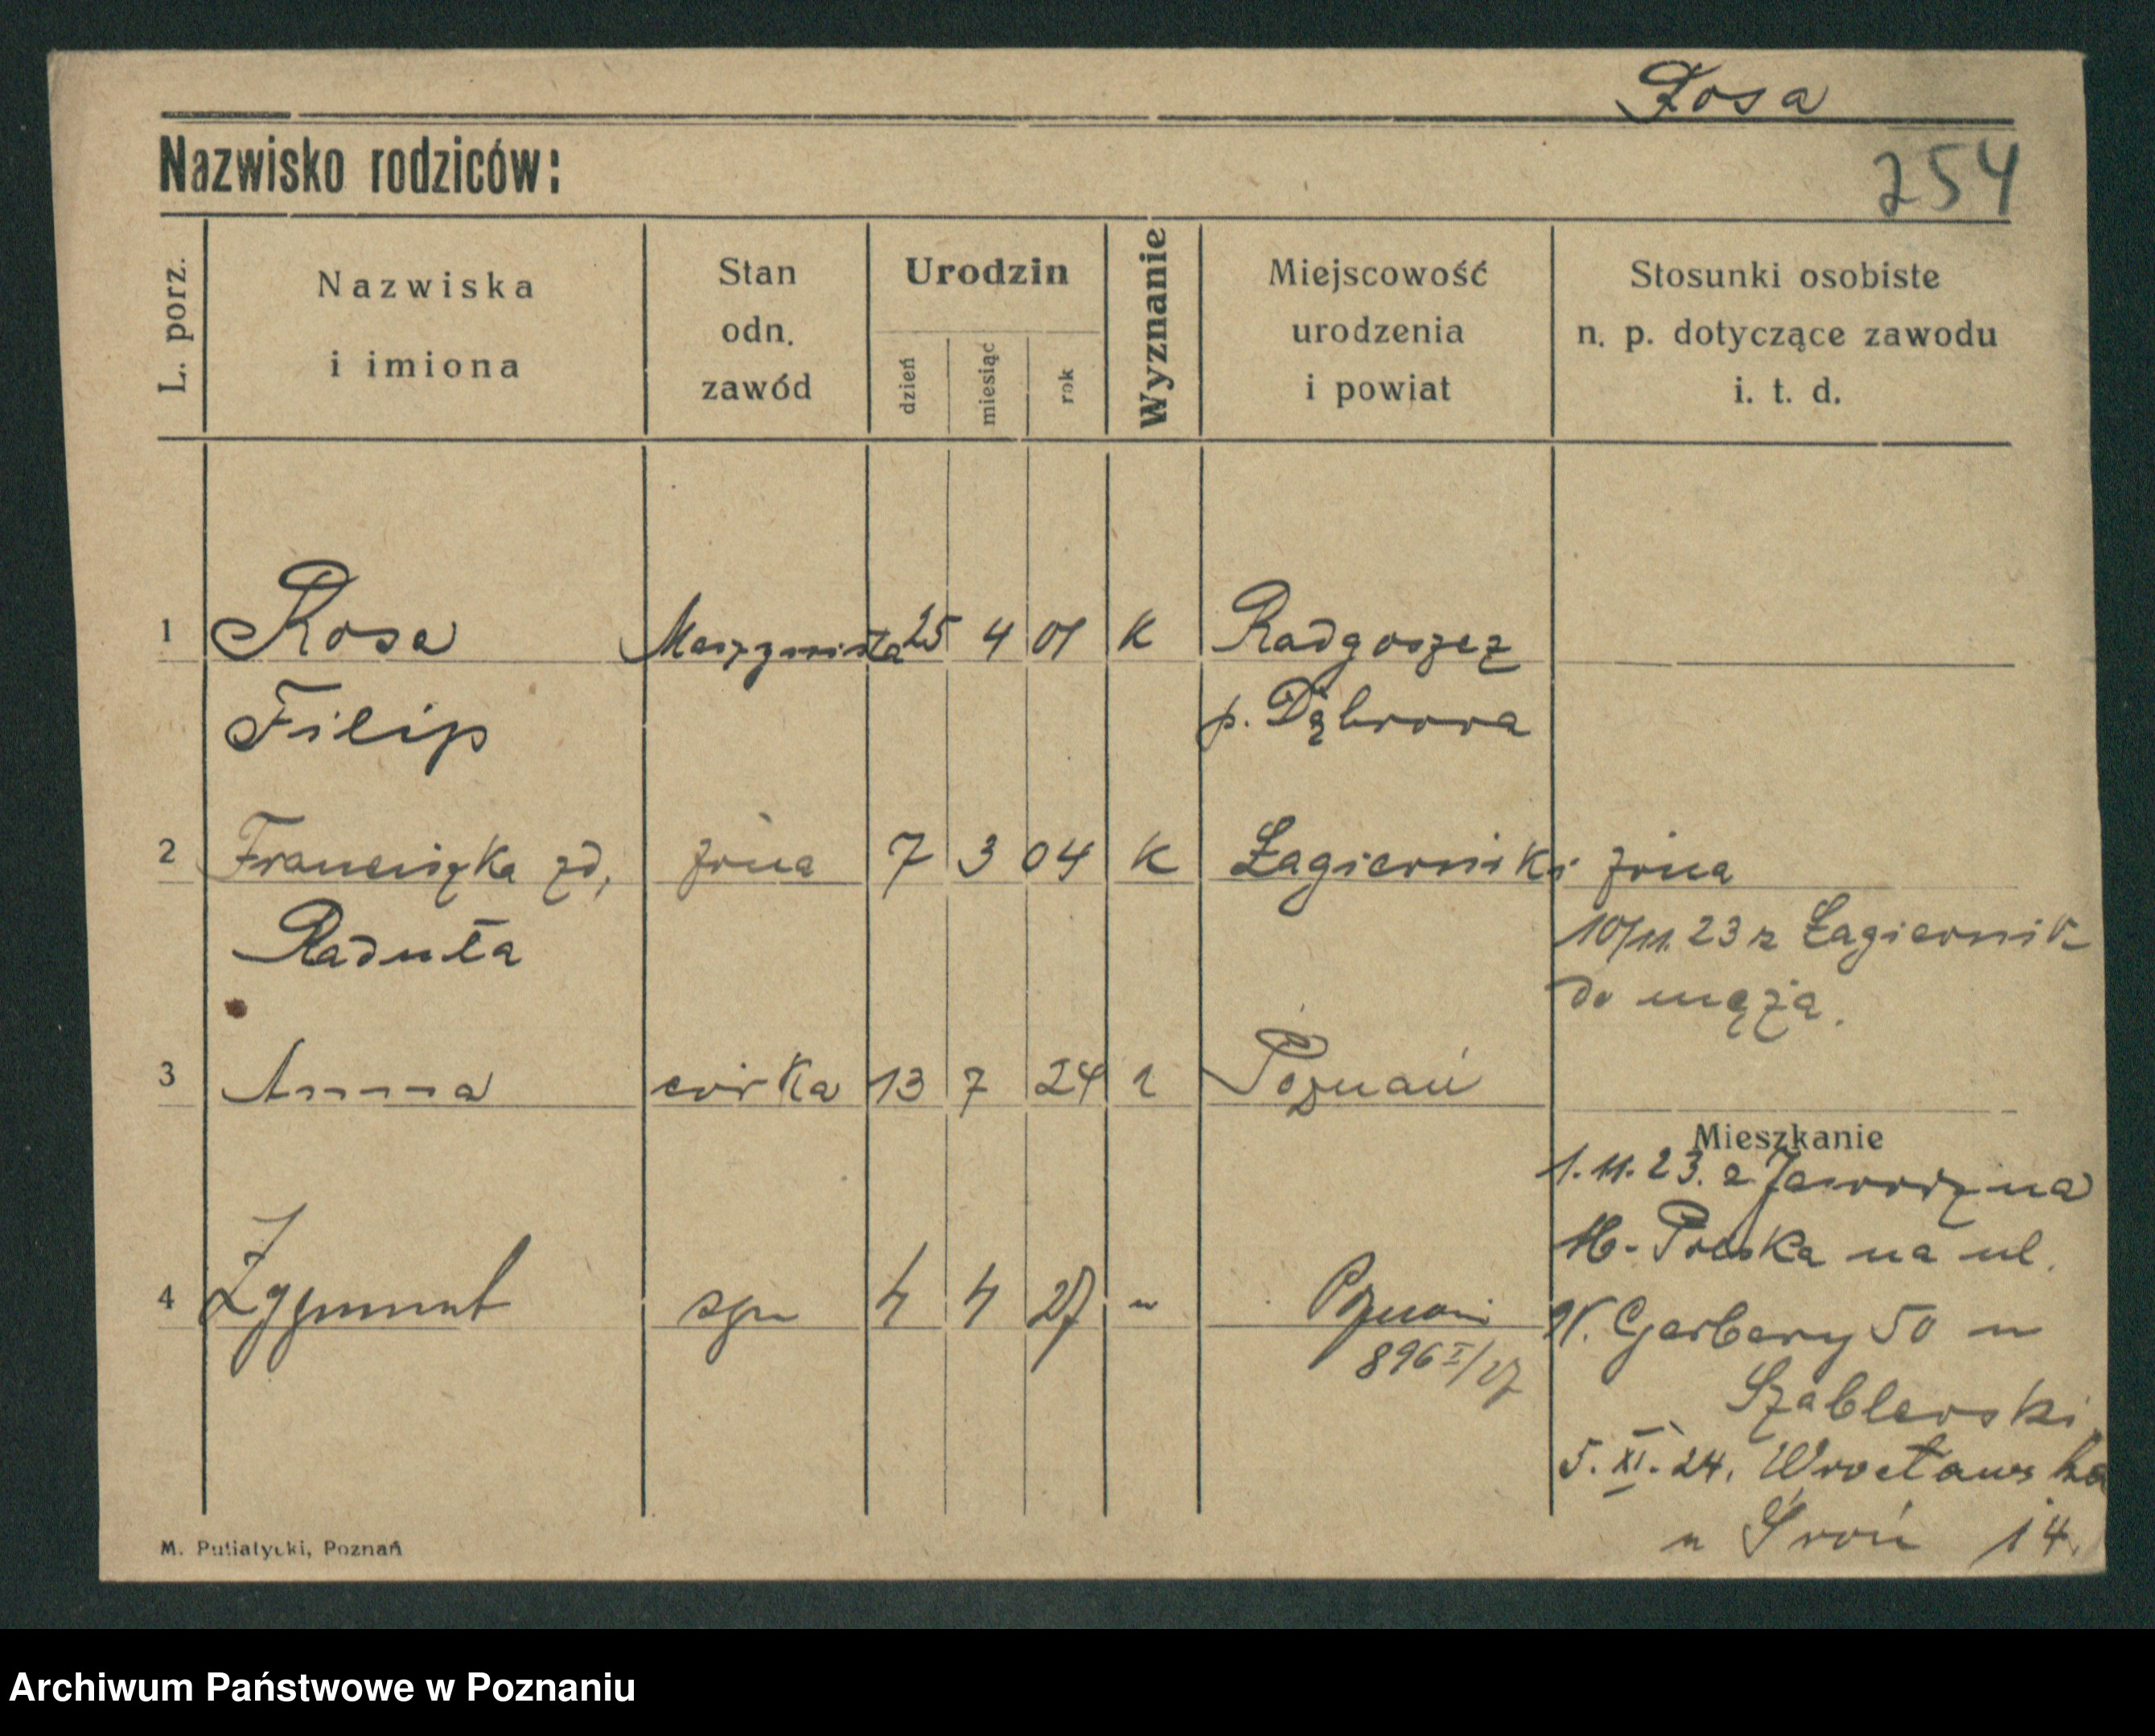 Rosa
Nazwisko rodziców:
254
L. porz.
Nazwiska
i imiona
Stan
odn.
zawód
Urodzin
dzień
miesiąc
rok
Wyznanie
Miejscowość
urodzenia
i powiat
Stosunki osobiste
n. p. dotyczące zawodu
i. t. d.
1 Rosa Maszynista 25 4 01 K Radgoszcz
Filip p. Dąbrowa
2 Franciszka zd, żona 7 3 04 K Łagierniki żona
Raduła 10/11. 23 z Łagiernik
do męża.
3 Anna córka 13 7 24 Poznań
Mieszkanie
1. 11. 23. z Jaworzna
M-Polska na ul.
4 Zygmunt syn 4 4 27 " Poznań W. Garbary 50 u
896 I/27
Szablewski
5. XI. 24. Wrocławska
u Groń 14.
M. Putiatycki, Poznań
Archiwum Państwowe w Poznaniu